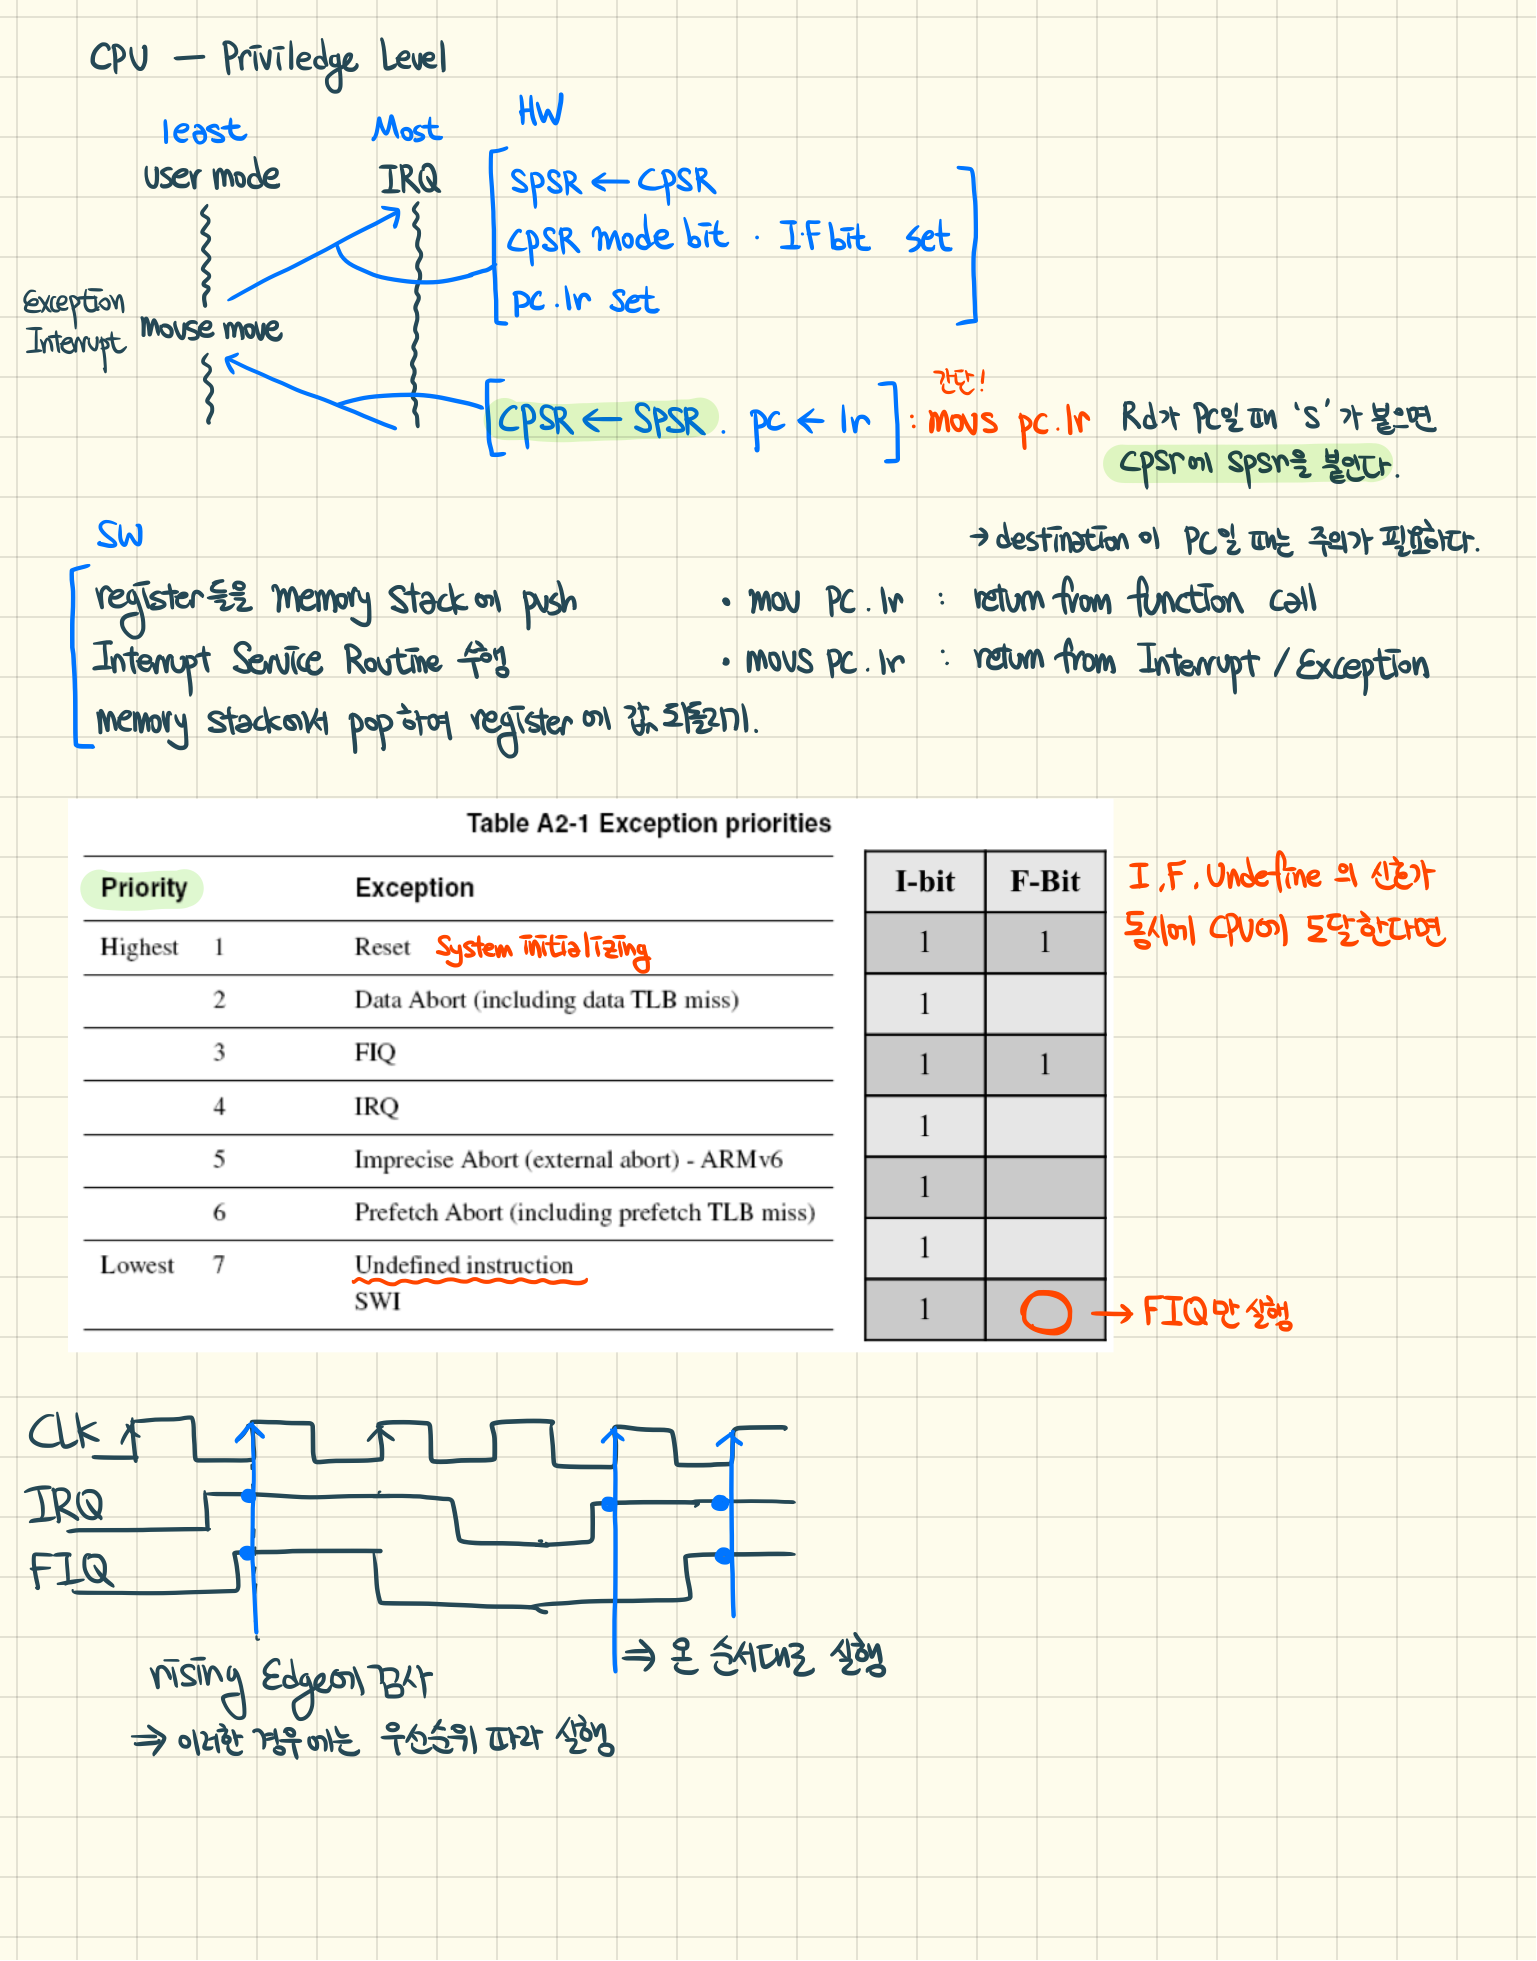 CPU — Priviledge Level
least Most HW
user mode IRQ
SPSR ← CPSR
CPSR mode bit · I·F bit set
pc·lr set
Exception
Interrupt
mouse move
간단!
CPSR ← SPSR. pc ← lr : movs pc.lr
Rd가 PC일 때 'S'가 붙으면
CPSr에 SpSr을 붙인다.
→ destination이 PC일 때는 주의가 필요하다.
SW
register들을 memory stack에 push
Interrupt Service Routine 수행
memory stack에서 pop하여 register에 값 되돌리기.
• mov PC.lr : return from function call
• movs PC.lr : return from Interrupt / Exception
Table A2-1 Exception priorities
Priority Exception I-bit F-Bit
Highest 1 Reset System initializing 1 1
2 Data Abort (including data TLB miss) 1
3 FIQ 1 1
4 IRQ 1
5 Imprecise Abort (external abort) - ARMv6 1
6 Prefetch Abort (including prefetch TLB miss) 1
Lowest 7 Undefined instruction
SWI 1
I.F. Undefine의 신호가
동시에 CPU에 도달한다면
→ FIQ만 실행
CLK
IRQ
FIQ
rising Edge에 검사
⇒ 이러한 경우에는 우선순위 따라 실행
⇒ 온 순서대로 실행